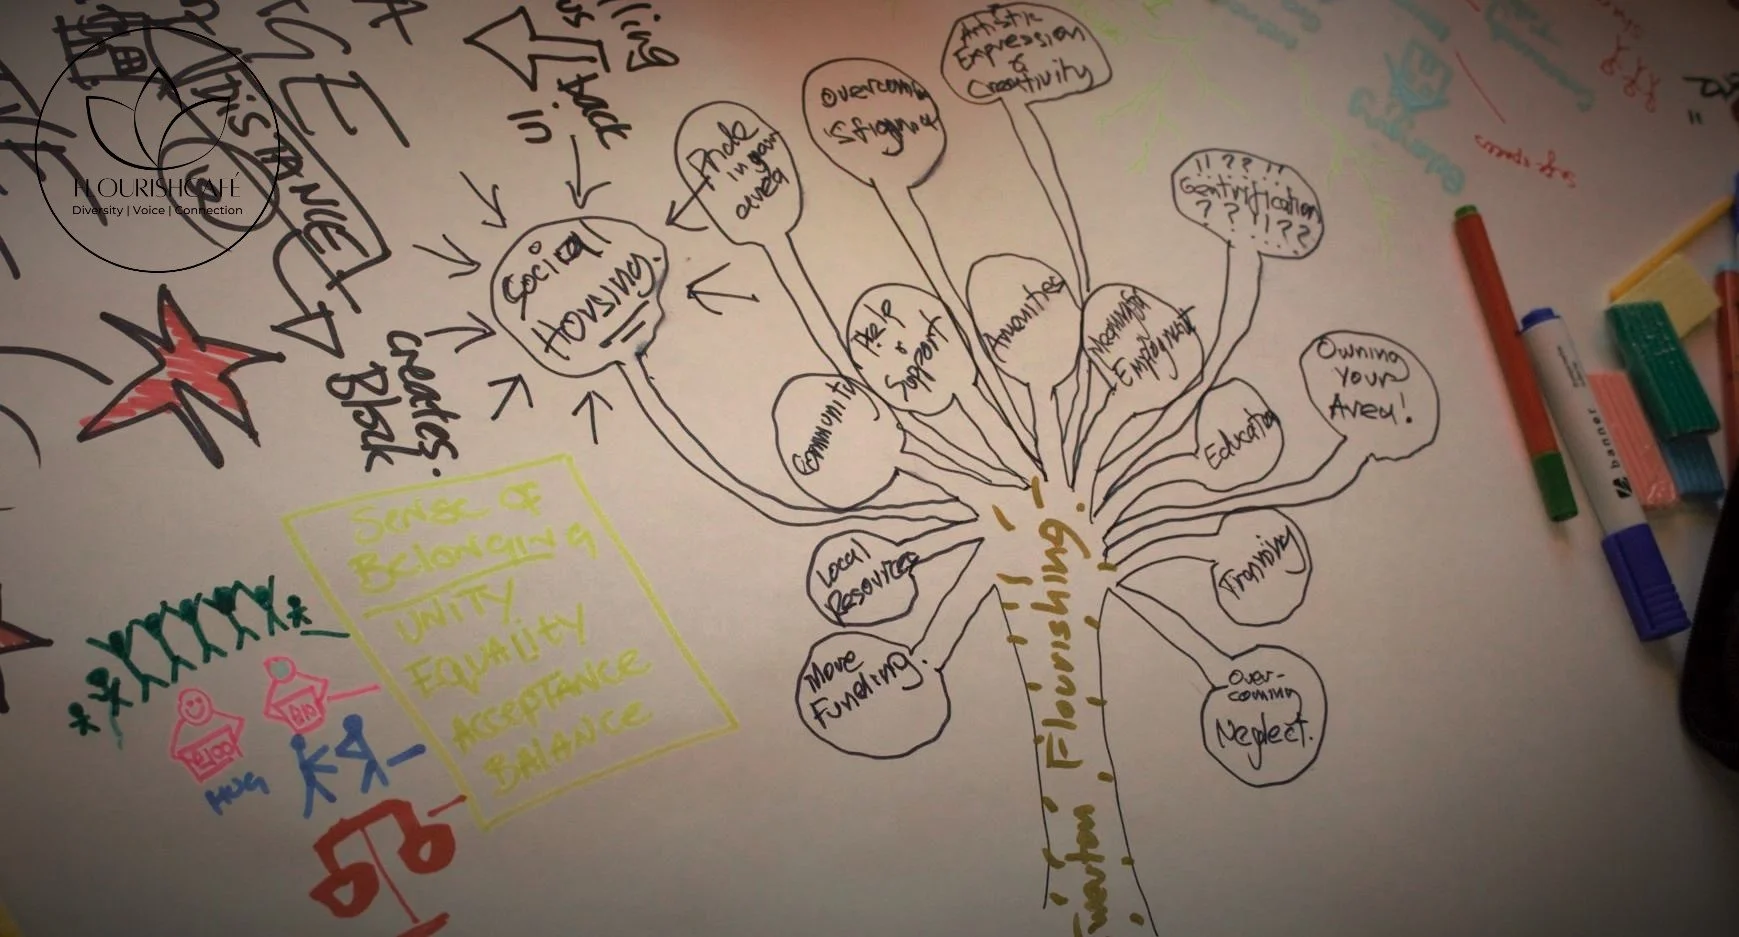 FLOURISHCAFÉ
Diversity | Voice | Connection
DISTANCE
back
in
creates.
Block
Social
Housing.
Pride
in your
area
Overcoming
Stigma
Artistic
Expression
&
Creativity
!! ?? !!
Gentrification
? ? !! ??
Community
Help
&
Support
Amenities
Meaningful
Employment
Education
Owning
Your
Area!
Local
Resources
Training
More
Funding.
Over-
coming
Neglect.
Twerton Flourishing.
Sense of
Belonging
UNITY
EQUALITY
ACCEPTANCE
BALANCE
HUG
banner